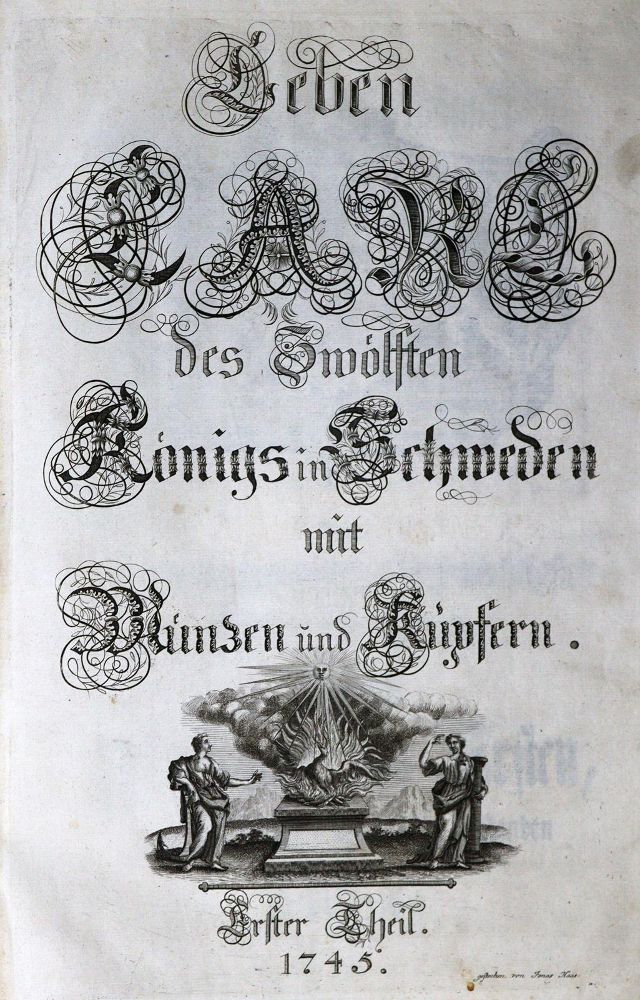 Leben
CARL
des Zwölften
Königs in Schweden
mit
Münzen und Kupfern.
Erster Theil.
1745.
gestochen von Jonas Haas